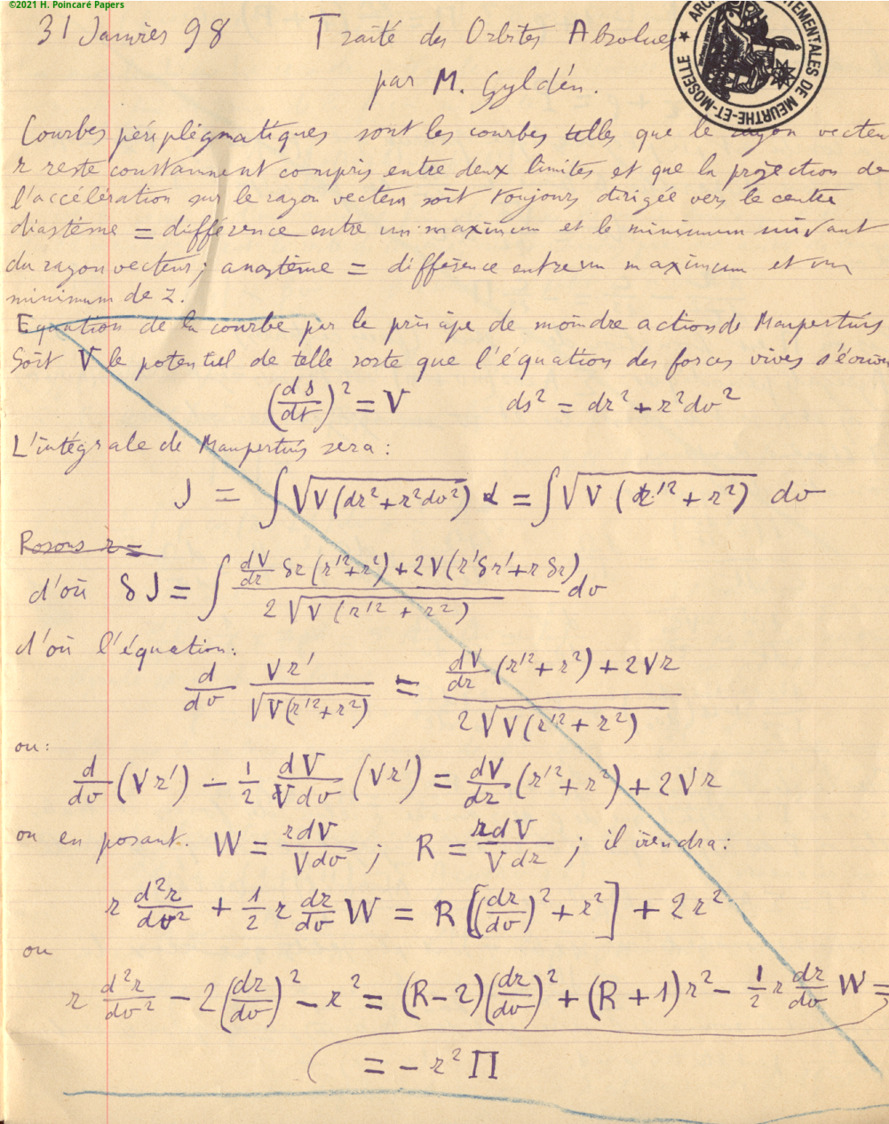 ©2021 H. Poincaré Papers
31 Janvier 98 Traité des Orbites Absolues
par M. Gyldén.
Courbes périplégmatiques sont les courbes telles que le rayon vecteu
r reste constamment compris entre deux limites et que la projection de
l'accélération sur le rayon vecteur soit toujours dirigée vers le centre
diastème = différence entre un maximum et le minimum suivant
du rayon vecteur; anastème = différence entre un maximum et un
minimum de z.
Equation de la courbe par le principe de moindre action de Maupertuis
Soit V le potentiel de telle sorte que l'équation des forces vives s'écrive
(ds/dt)² = V ds² = dr² + r²dv²
L'intégrale de Maupertuis sera:
J = ∫√V(dr²+r²dv²) = ∫√V(r'²+r²) dv
Posons r =
d'où δJ = ∫ (dV/dr δr(r'²+r²)+2V(r'δr'+rδr)) / (2√V(r'²+r²)) dv
d'où l'équation:
d/dv Vr'/√V(r'²+r²) = (dV/dr (r'²+r²)+2Vr) / (2√V(r'²+r²))
ou:
d/dv (Vr') − 1/2 dV/Vdv (Vr') = dV/dr (r'²+r²)+2Vr
ou en posant. W = rdV/Vdv ; R = rdV/Vdr ; il viendra:
r d²r/dv² + 1/2 r dr/dv W = R[(dr/dv)²+r²] + 2r²
ou
r d²r/dv² − 2(dr/dv)² − r² = (R−2)(dr/dv)² + (R+1)r² − 1/2 r dr/dv W =
= −r²Π